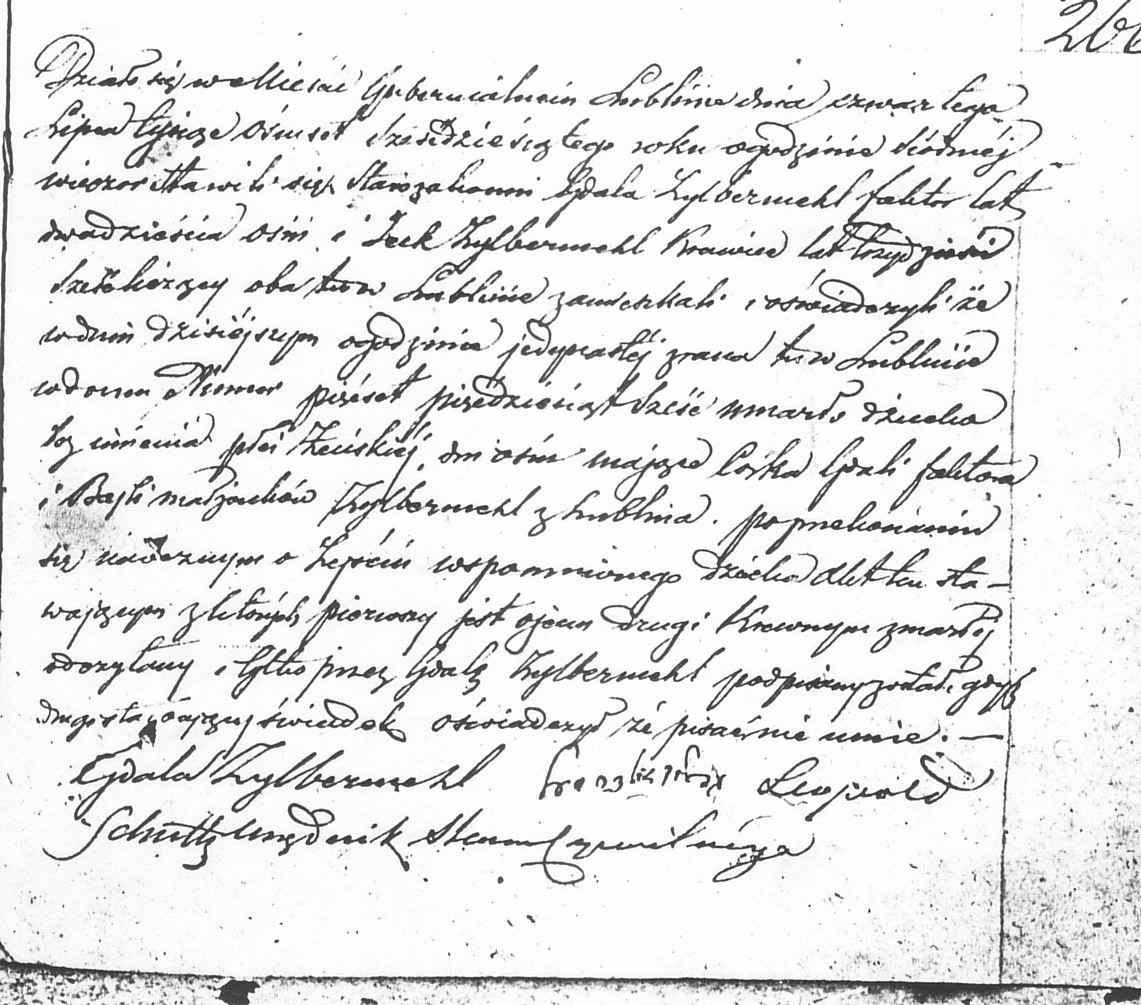 266
Działo się w Mieście Gubernialnem Lublinie dnia czwartego
Lipca tysiąc ośmset sześdziesiątego roku ogodzinie siódméj
wieczor stawili się Starozakonni Gdala Zylbermehl faktor lat
dwadzieścia ośm i Icek Zylbermehl Krawiec lat trzydzieści
sześć liczący oba tu w Lublinie zamieszkali i oświadczyli że
w dniu dzisiéjszym ogodzinie jedynastéj zrana tu w Lublinie
w domu Numer pięćset pięćdziesiąt sześć umarło dziecko
bez imienia płci żeńskiéj dni ośm mające Córka Gdali faktora
i Bajli małżonków Zylbermehl z Lublina. po przekonaniu
się naocznym o zejściu wspomnionego dziecka Akt ten sta-
wającym z których pierwszy jest ojcem drugi Krewnym zmarłéj
odczytany i tylko przez Gdalę Zylbermehl podpisany został, gdyż
drugi stawający świadek oświadczył że pisać nie umie. —
Gdala Zylbermehl Leopold
Schultz Urzędnik Stanu Cywilnégo